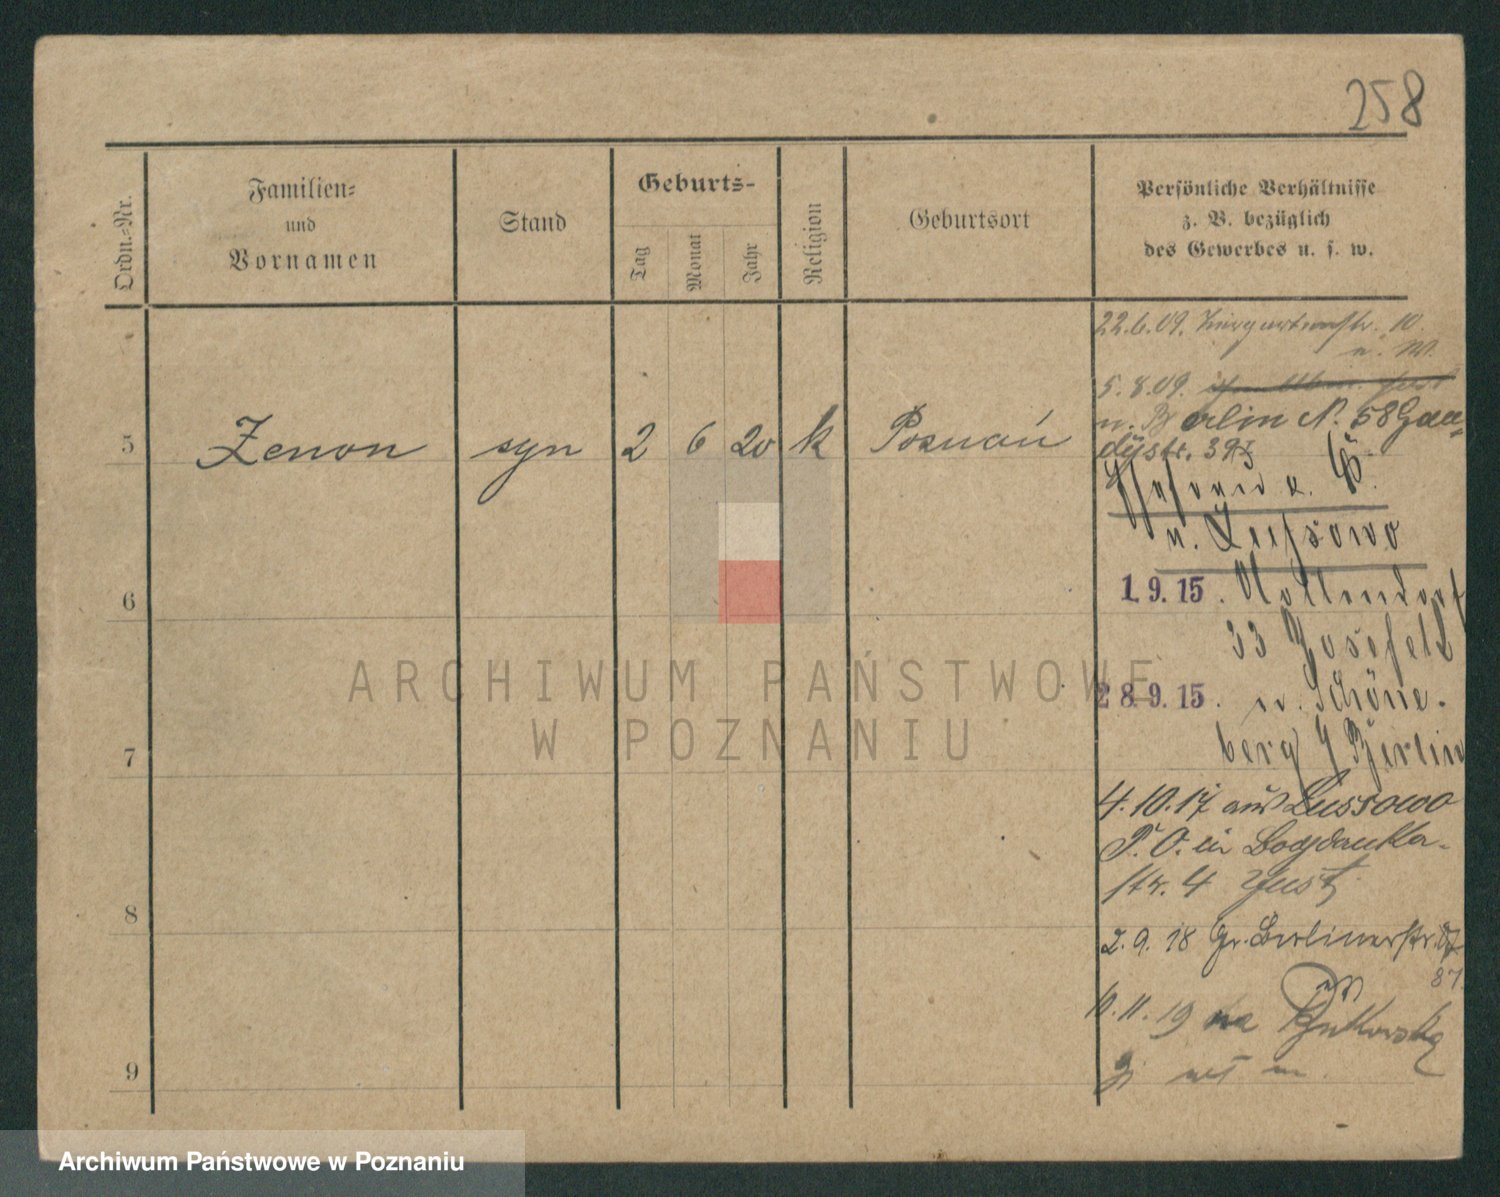 258
Ordn.-Nr.
Familien-
und
Vornamen
Stand
Geburts-
Tag
Monat
Jahr
Religion
Geburtsort
Persönliche Verhältnisse
z. B. bezüglich
des Gewerbes u. s. w.
22.6.09. Tiergartenstr. 10.
n. W.
5.8.09.
n. Berlin N. 58 Gau-
dystr. 39I
5 Zenon syn 2 6 20 k Poznań
n. Lussowo
6
1.9.15. Nollendorf
33 Josefek
28.9.15. n. Schöne-
berg / Berlin
7
4.10.17 aus Lussowo
P.O. in Bogdanka-
str. 4 Just
8
2.9.18 Gr. Berlinerstr.
87
10.11.19 na
9
ARCHIWUM PAŃSTWOWE
W POZNANIU
Archiwum Państwowe w Poznaniu